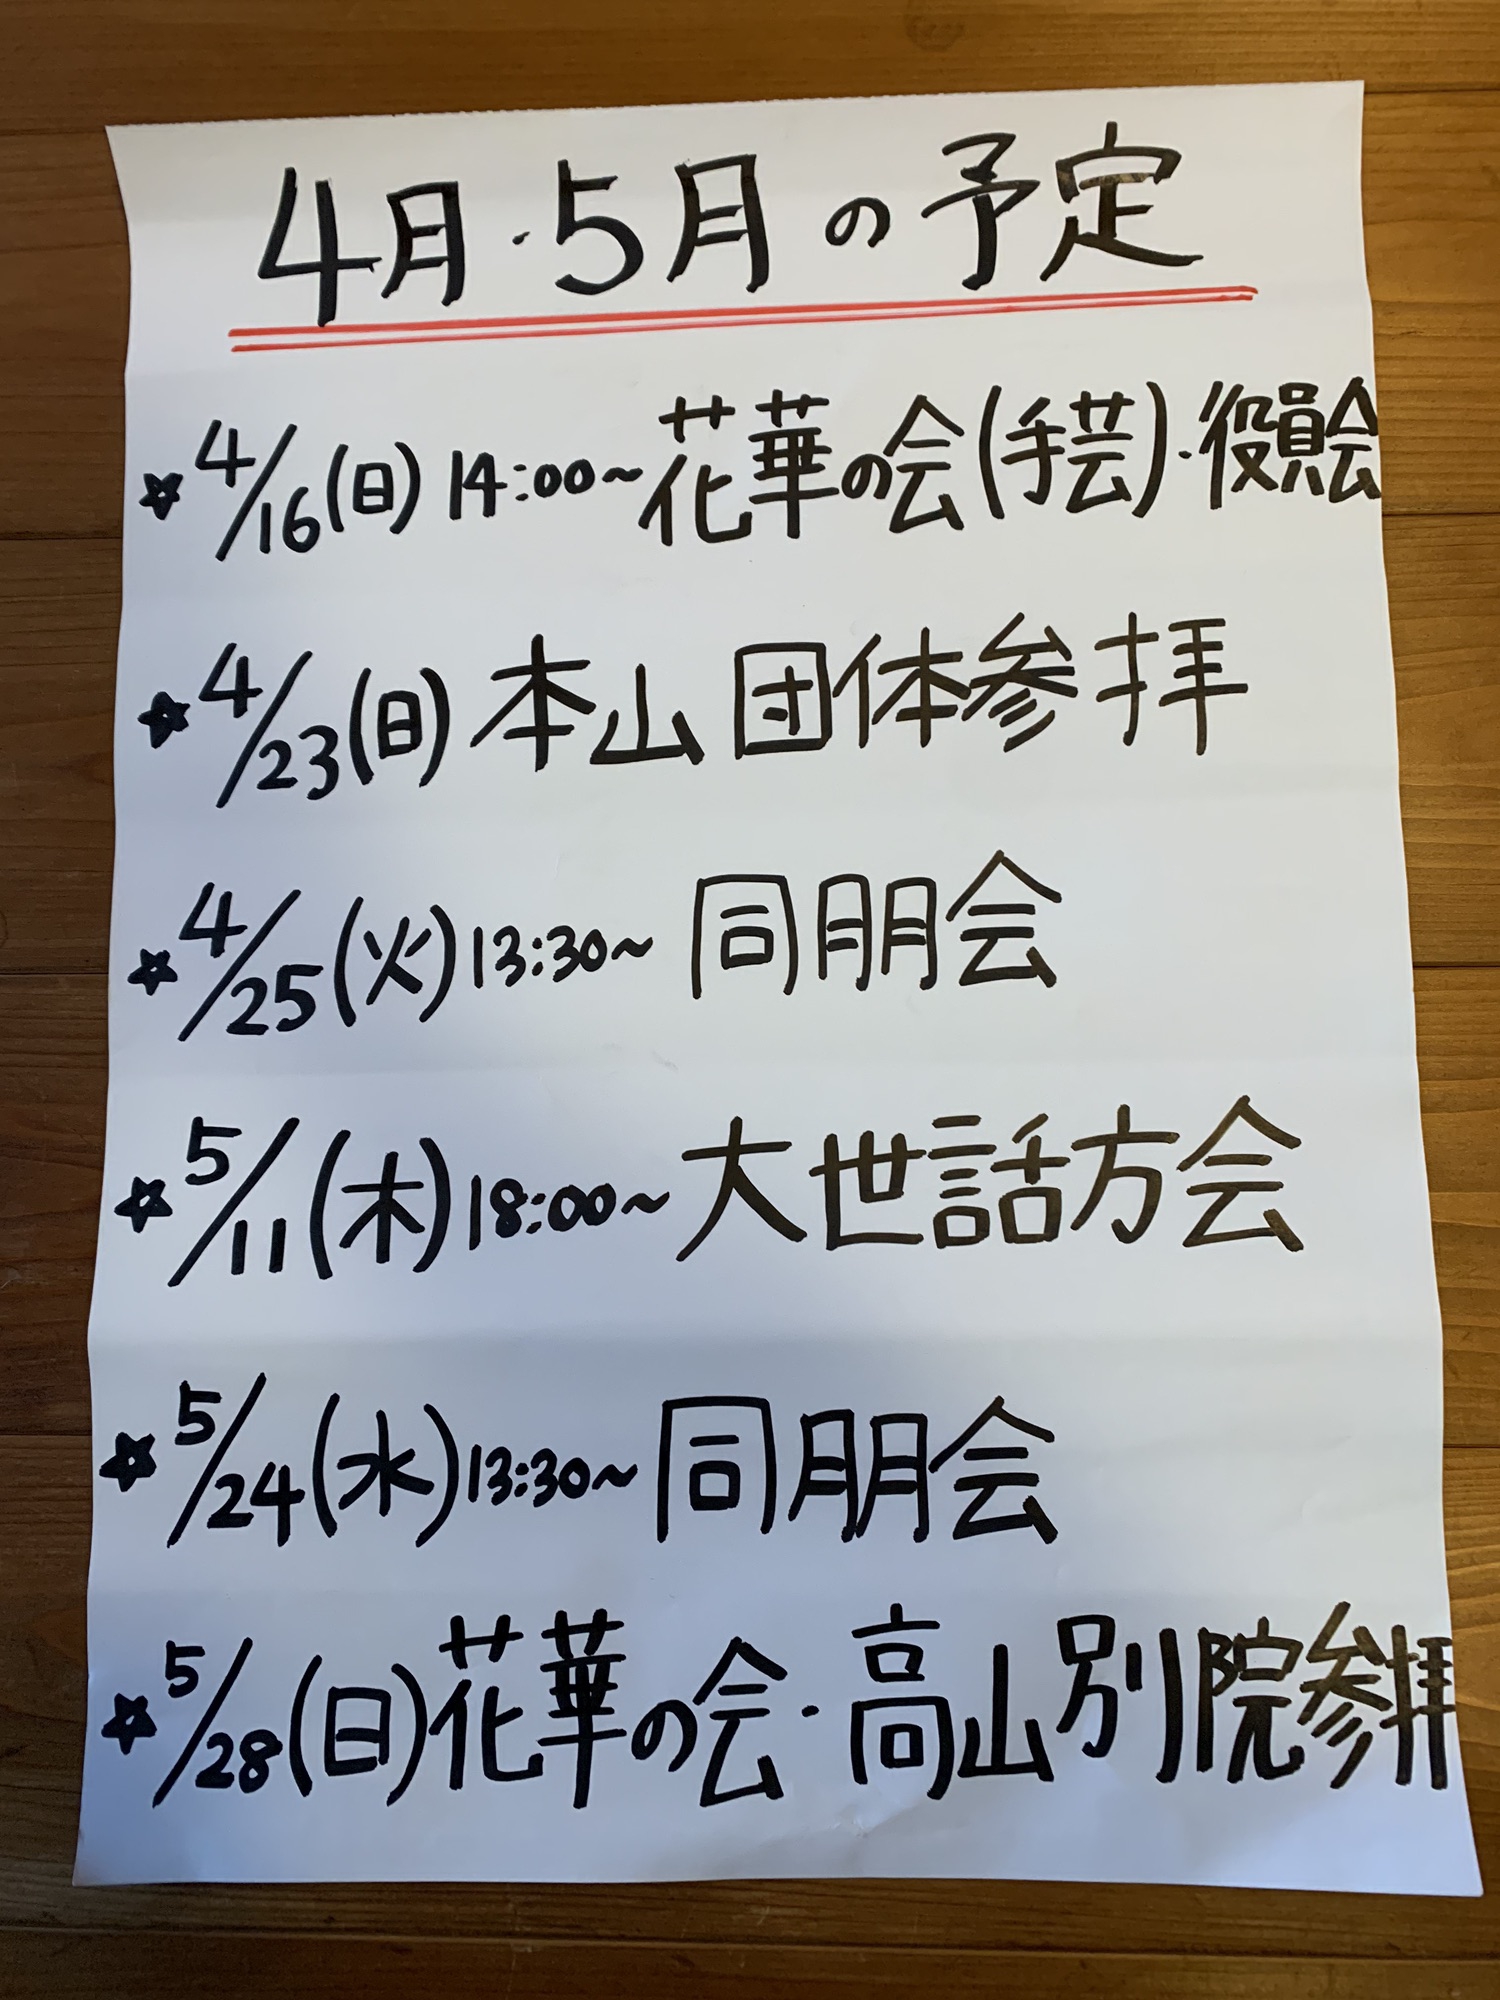 4月・5月の予定
☆4/16(日)14:00~花華の会(手芸)・役員会
☆4/23(日)本山団体参拝
☆4/25(火)13:30~同朋会
☆5/11(木)18:00~大世話方会
☆5/24(水)13:30~同朋会
☆5/28(日)花華の会・高山別院参拝